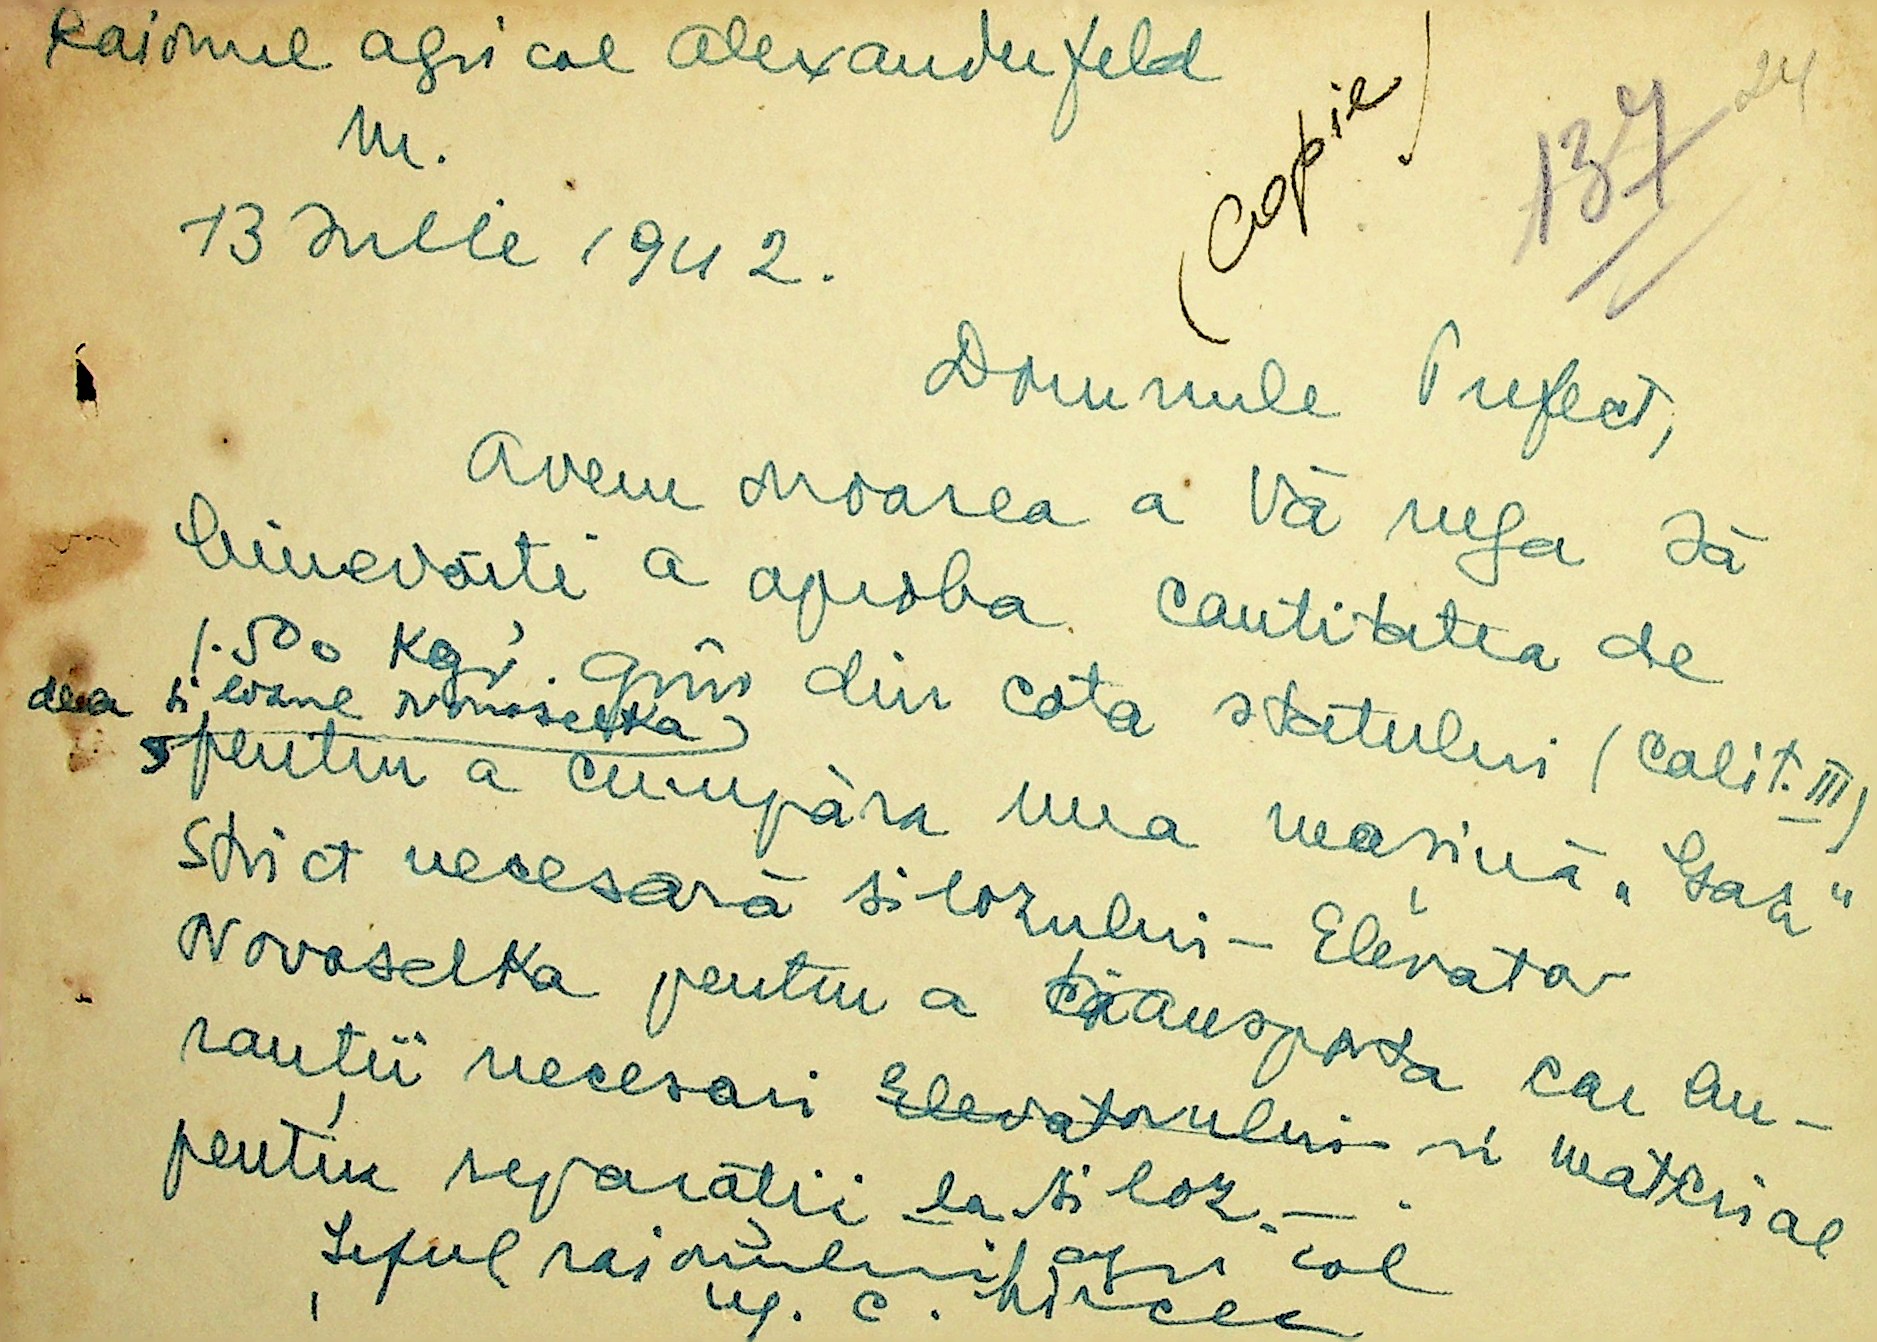 Raionul agricol Alexanderfeld
Nr.
13 Iulie 1942.
(Copie)
137
24
Domnule Prefect,
Avem onoarea a Vă ruga să
binevoiti a aproba cantitatea de
1.500 Kgr. grîu din cota statului (calit. III)
dela silozul Novoselka
pentru a cumpăra una mașină „Gaz"
strict necesară silozului – Elevator
Novoselka pentru a transporta carbu-
ranții necesari Elevatorului si material
pentru reparații la siloz. –
Șeful raionului agricol
Ing. C. Mircea